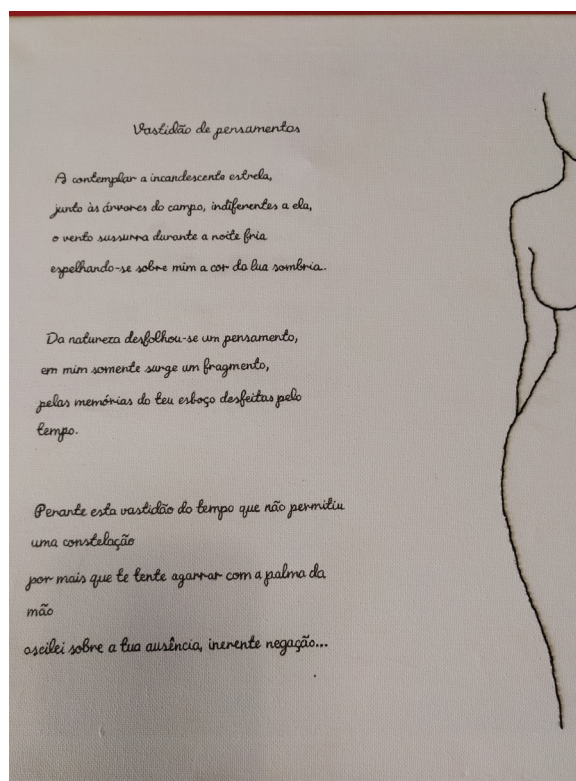 Vastidão de pensamentos
A contemplar a incandescente estrela,
junto às árvores do campo, indiferentes a ela,
o vento sussurra durante a noite fria
espelhando-se sobre mim a cor da lua sombria.
Da natureza desfolhou-se um pensamento,
em mim somente surge um fragmento,
pelas memórias do teu esboço desfeitas pelo
tempo.
Perante esta vastidão do tempo que não permitiu
uma constelação
por mais que te tente agarrar com a palma da
mão
oscilei sobre a tua ausência, inerente negação...